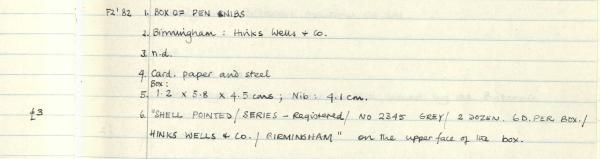 F2'82 1. BOX OF PEN NIBS
2. Birmingham : Hinks Wells & Co.
3. n.d.
4. Card, paper and steel
Box:
5. 1.2 x 5.8 x 4.5 cms ; Nib : 4.1 cm.
£3 6. "SHELL POINTED / SERIES - Registered / NO 2345 GREY / 2 DOZEN. 6D. PER BOX. /
HINKS WELLS & CO. / BIRMINGHAM" on the upper face of the box.